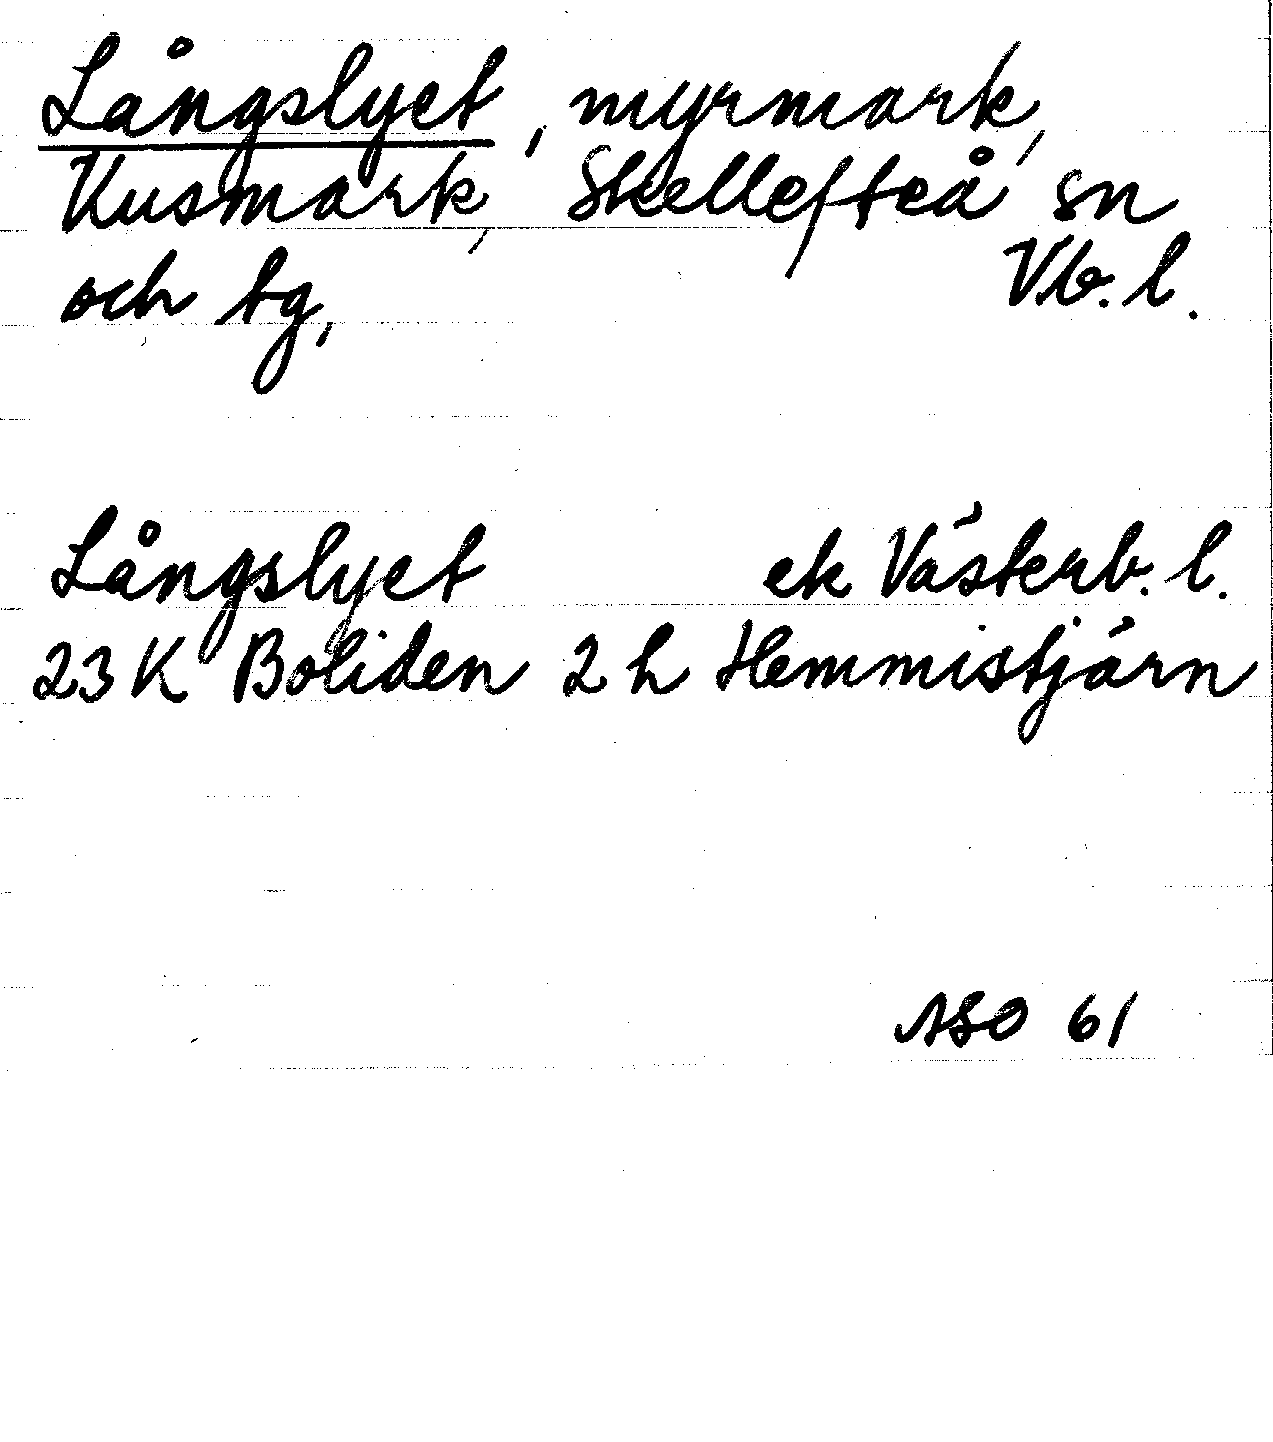 Långslyet, myrmark,
Kusmark, Skellefteå sn
och tg, Vb. l.
Långslyet ek Västerb. l.
23 K Boliden 2 h Hemmistjärn
ASO 61